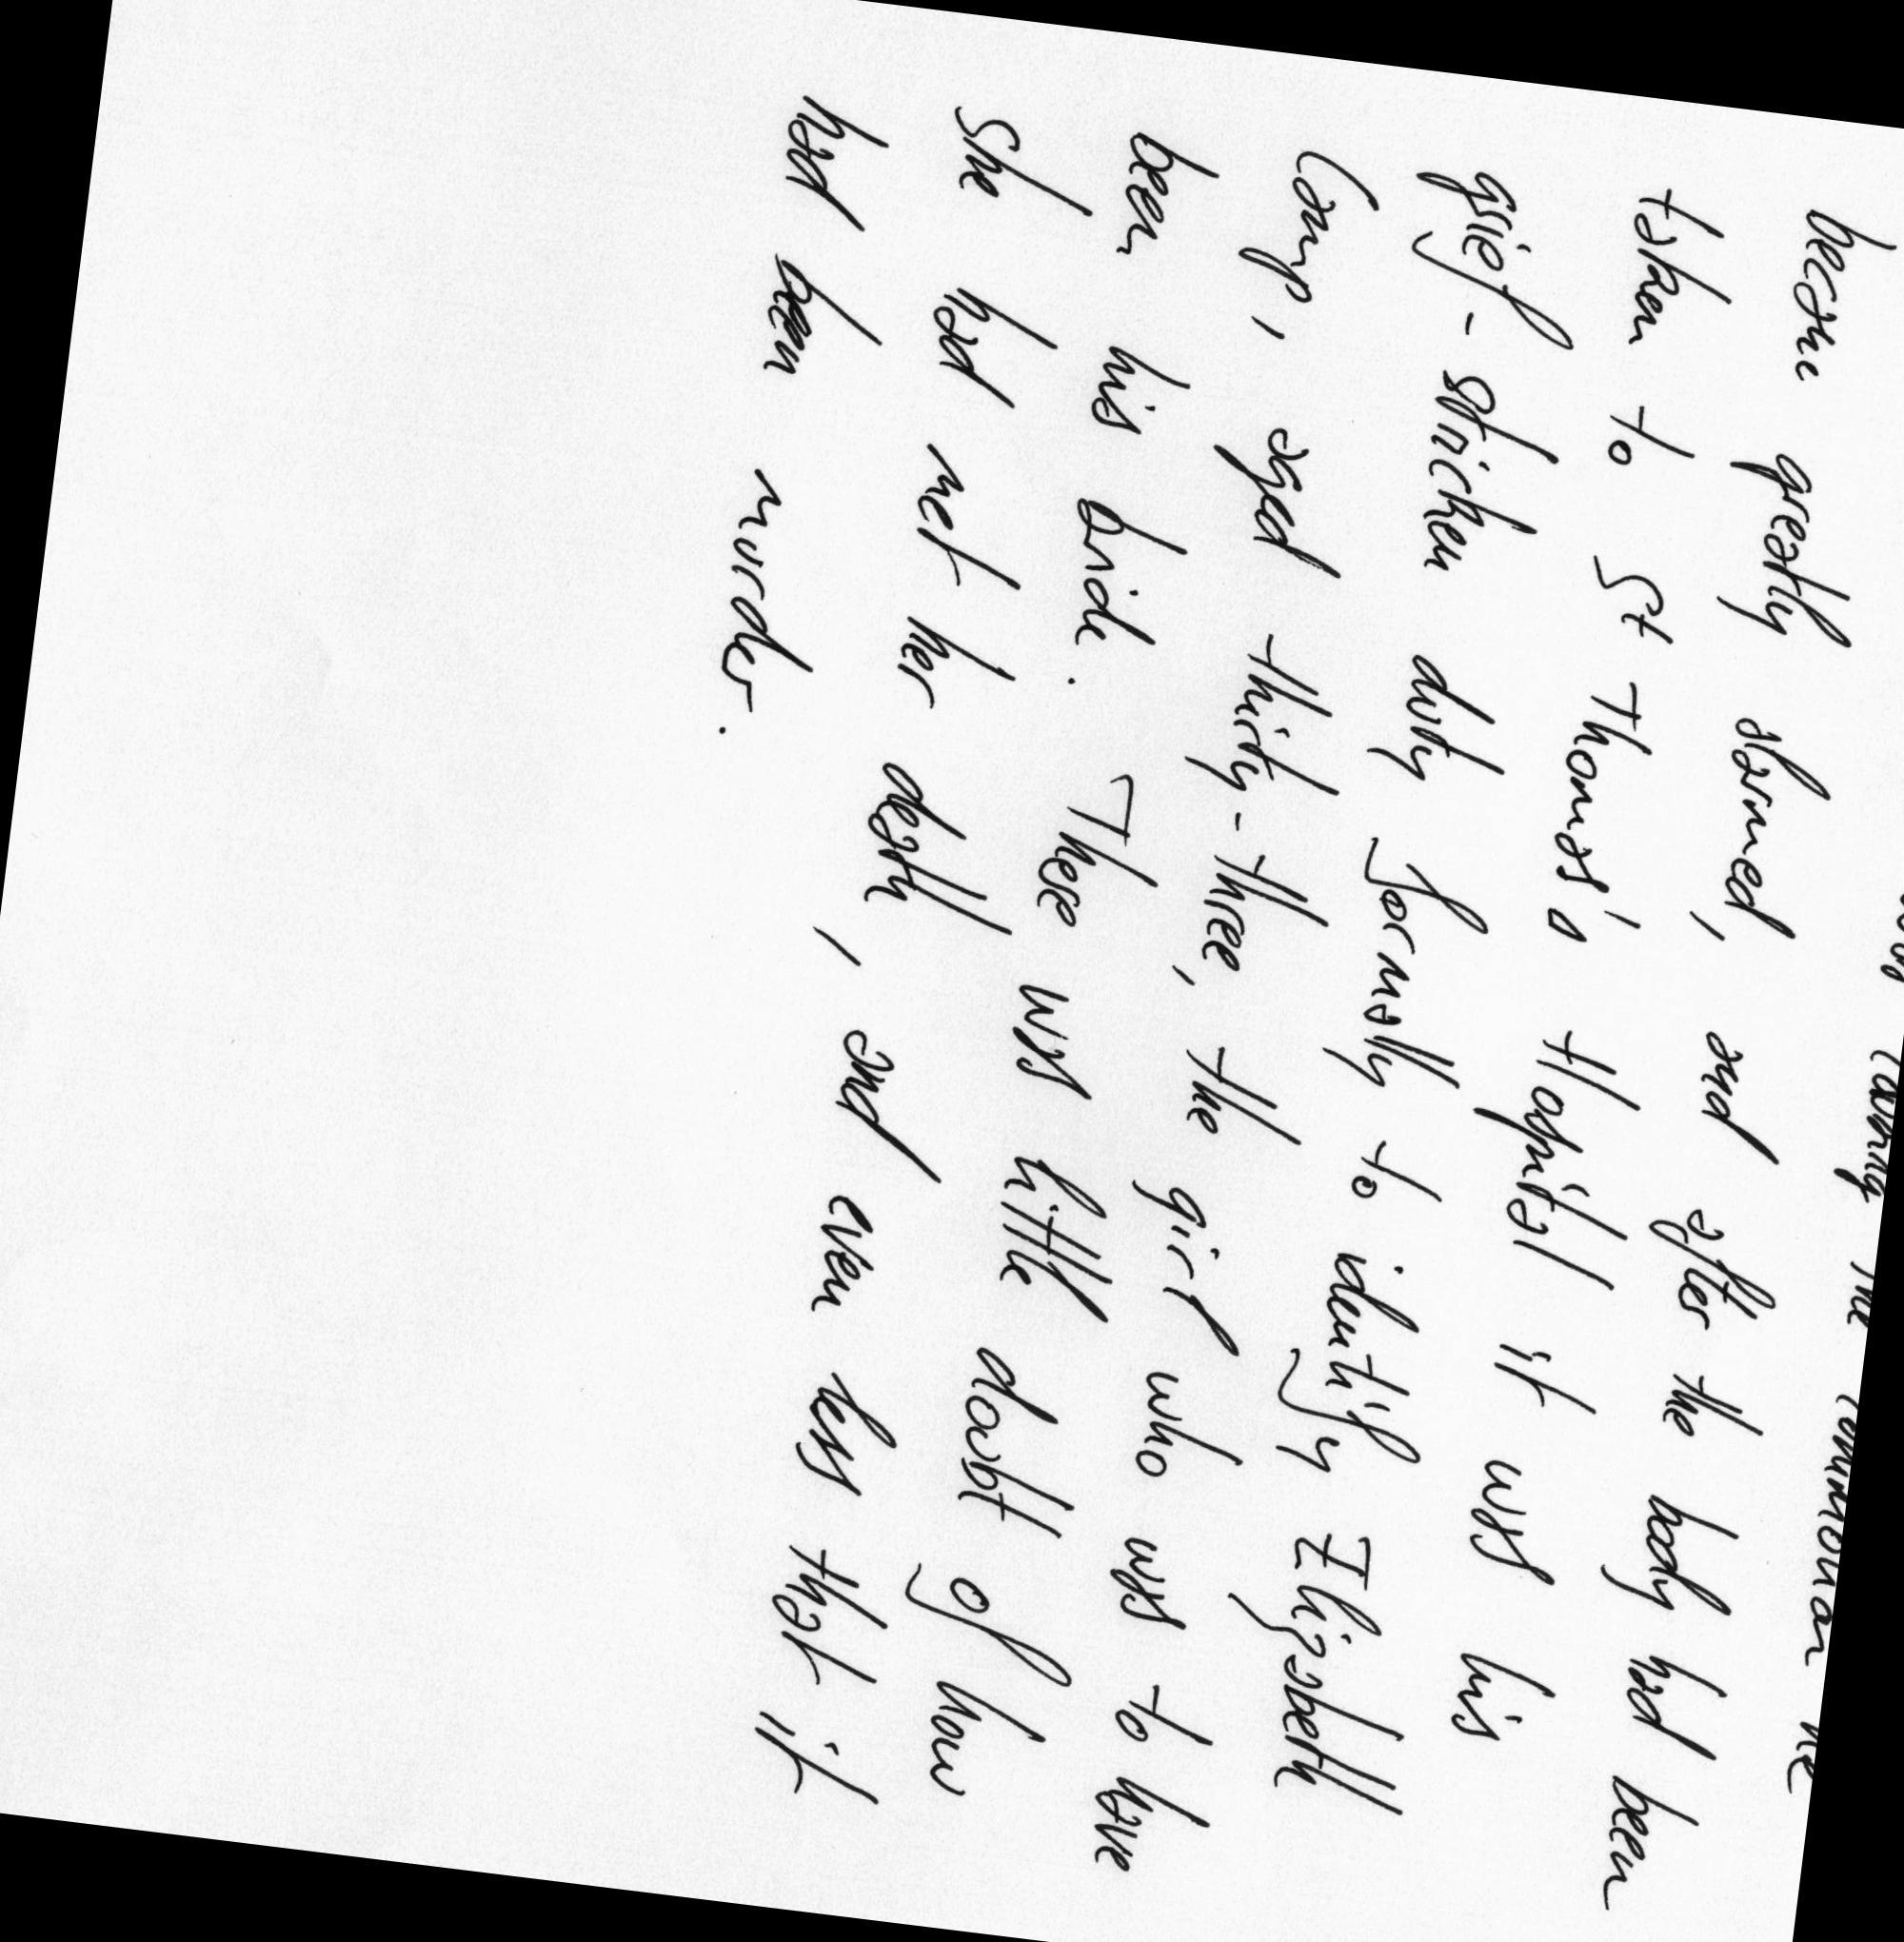 became greatly alarmed, and after the body had been
taken to St Thomas's Hospital it was his
grief-stricken duty formally to identify Elizabeth
Camp, aged thirty-three, the girl who was to have
been his bride. There was little doubt of how
she had met her death, and even less that it
had been murder.